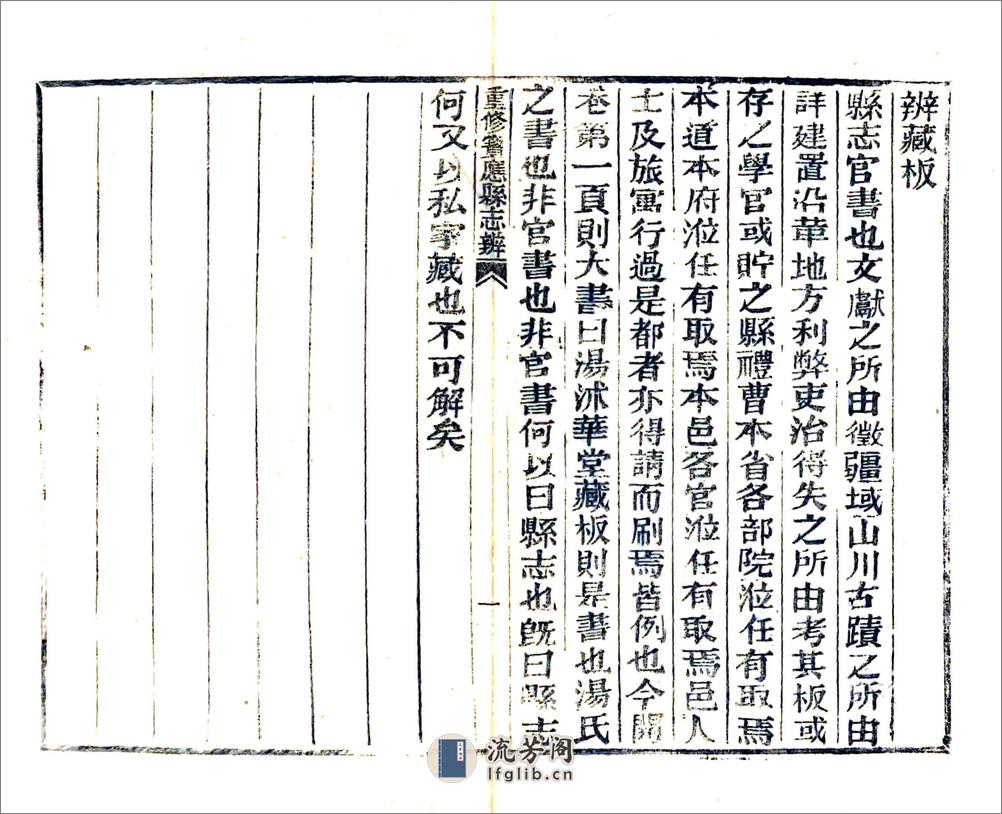 辨藏板
縣志官書也文獻之所由徵疆域山川古蹟之所由
詳建置沿革地方利弊吏治得失之所由考其板或
存之學官或貯之縣禮曹本省各部院涖任有取焉
本道本府涖任有取焉本邑各官涖任有取焉邑人
士及旅寓行過是都者亦得請而刷焉皆例也今開
卷第一頁則大書曰湯沭華堂藏板則是書也湯氏
之書也非官書也非官書何以曰縣志也旣曰縣志
重修寶應縣志辨
一
何又以私家藏也不可解矣
流芳阁
lfglib.cn